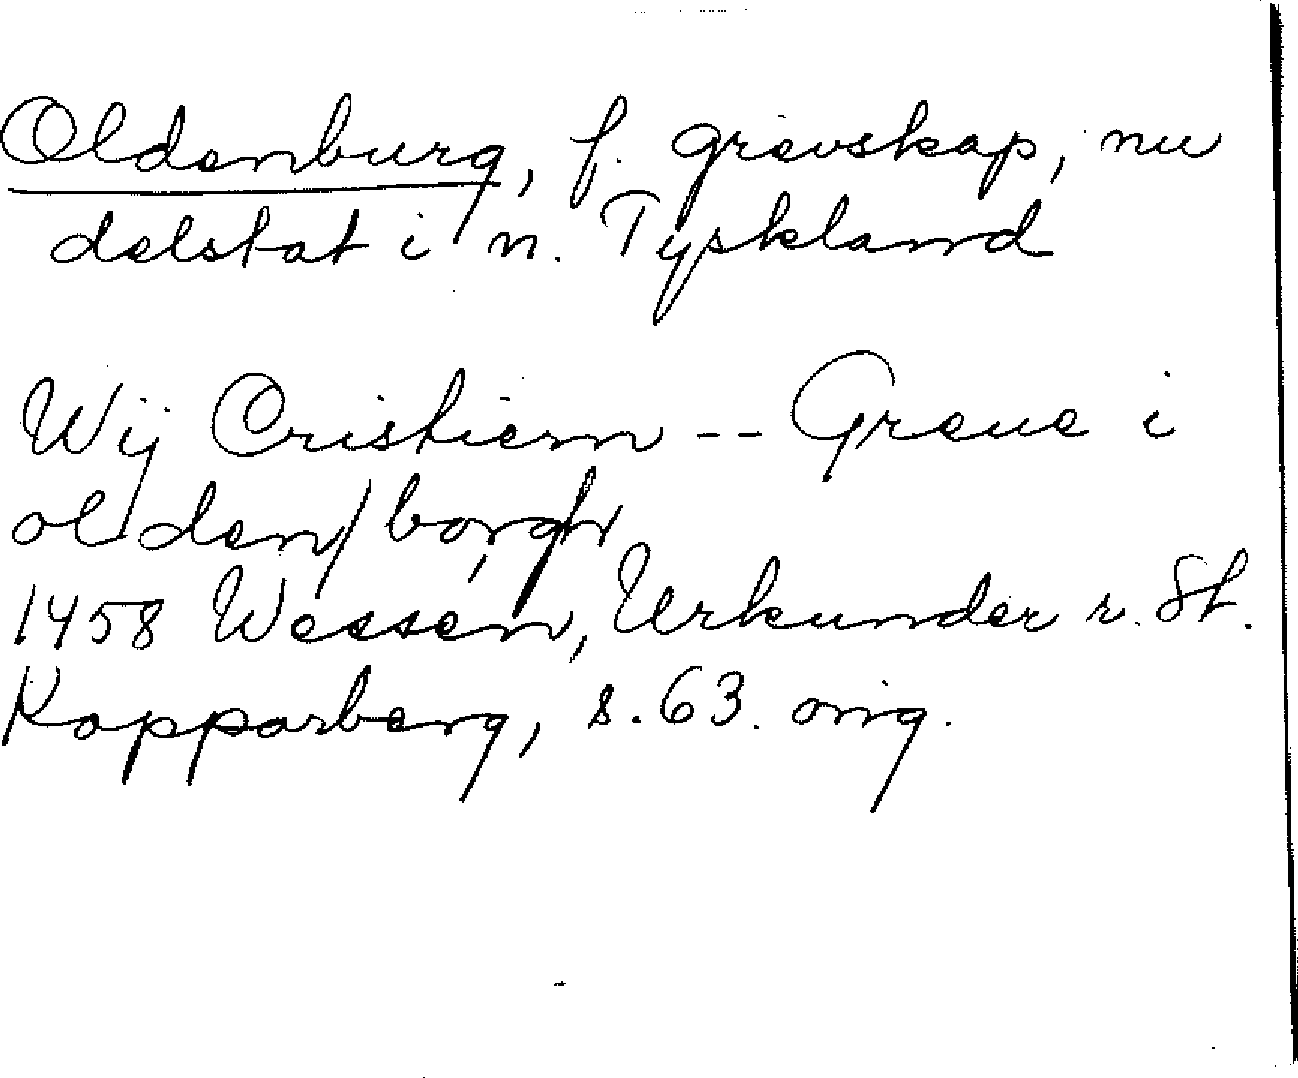 Oldenburg, f. grevskap, nu
delstat i n. Tyskland
Wij Cristiern -- Greue i
olden/borgh
1458 Wessén, Urkunder r. St.
Kopparberg, s. 63. orig.